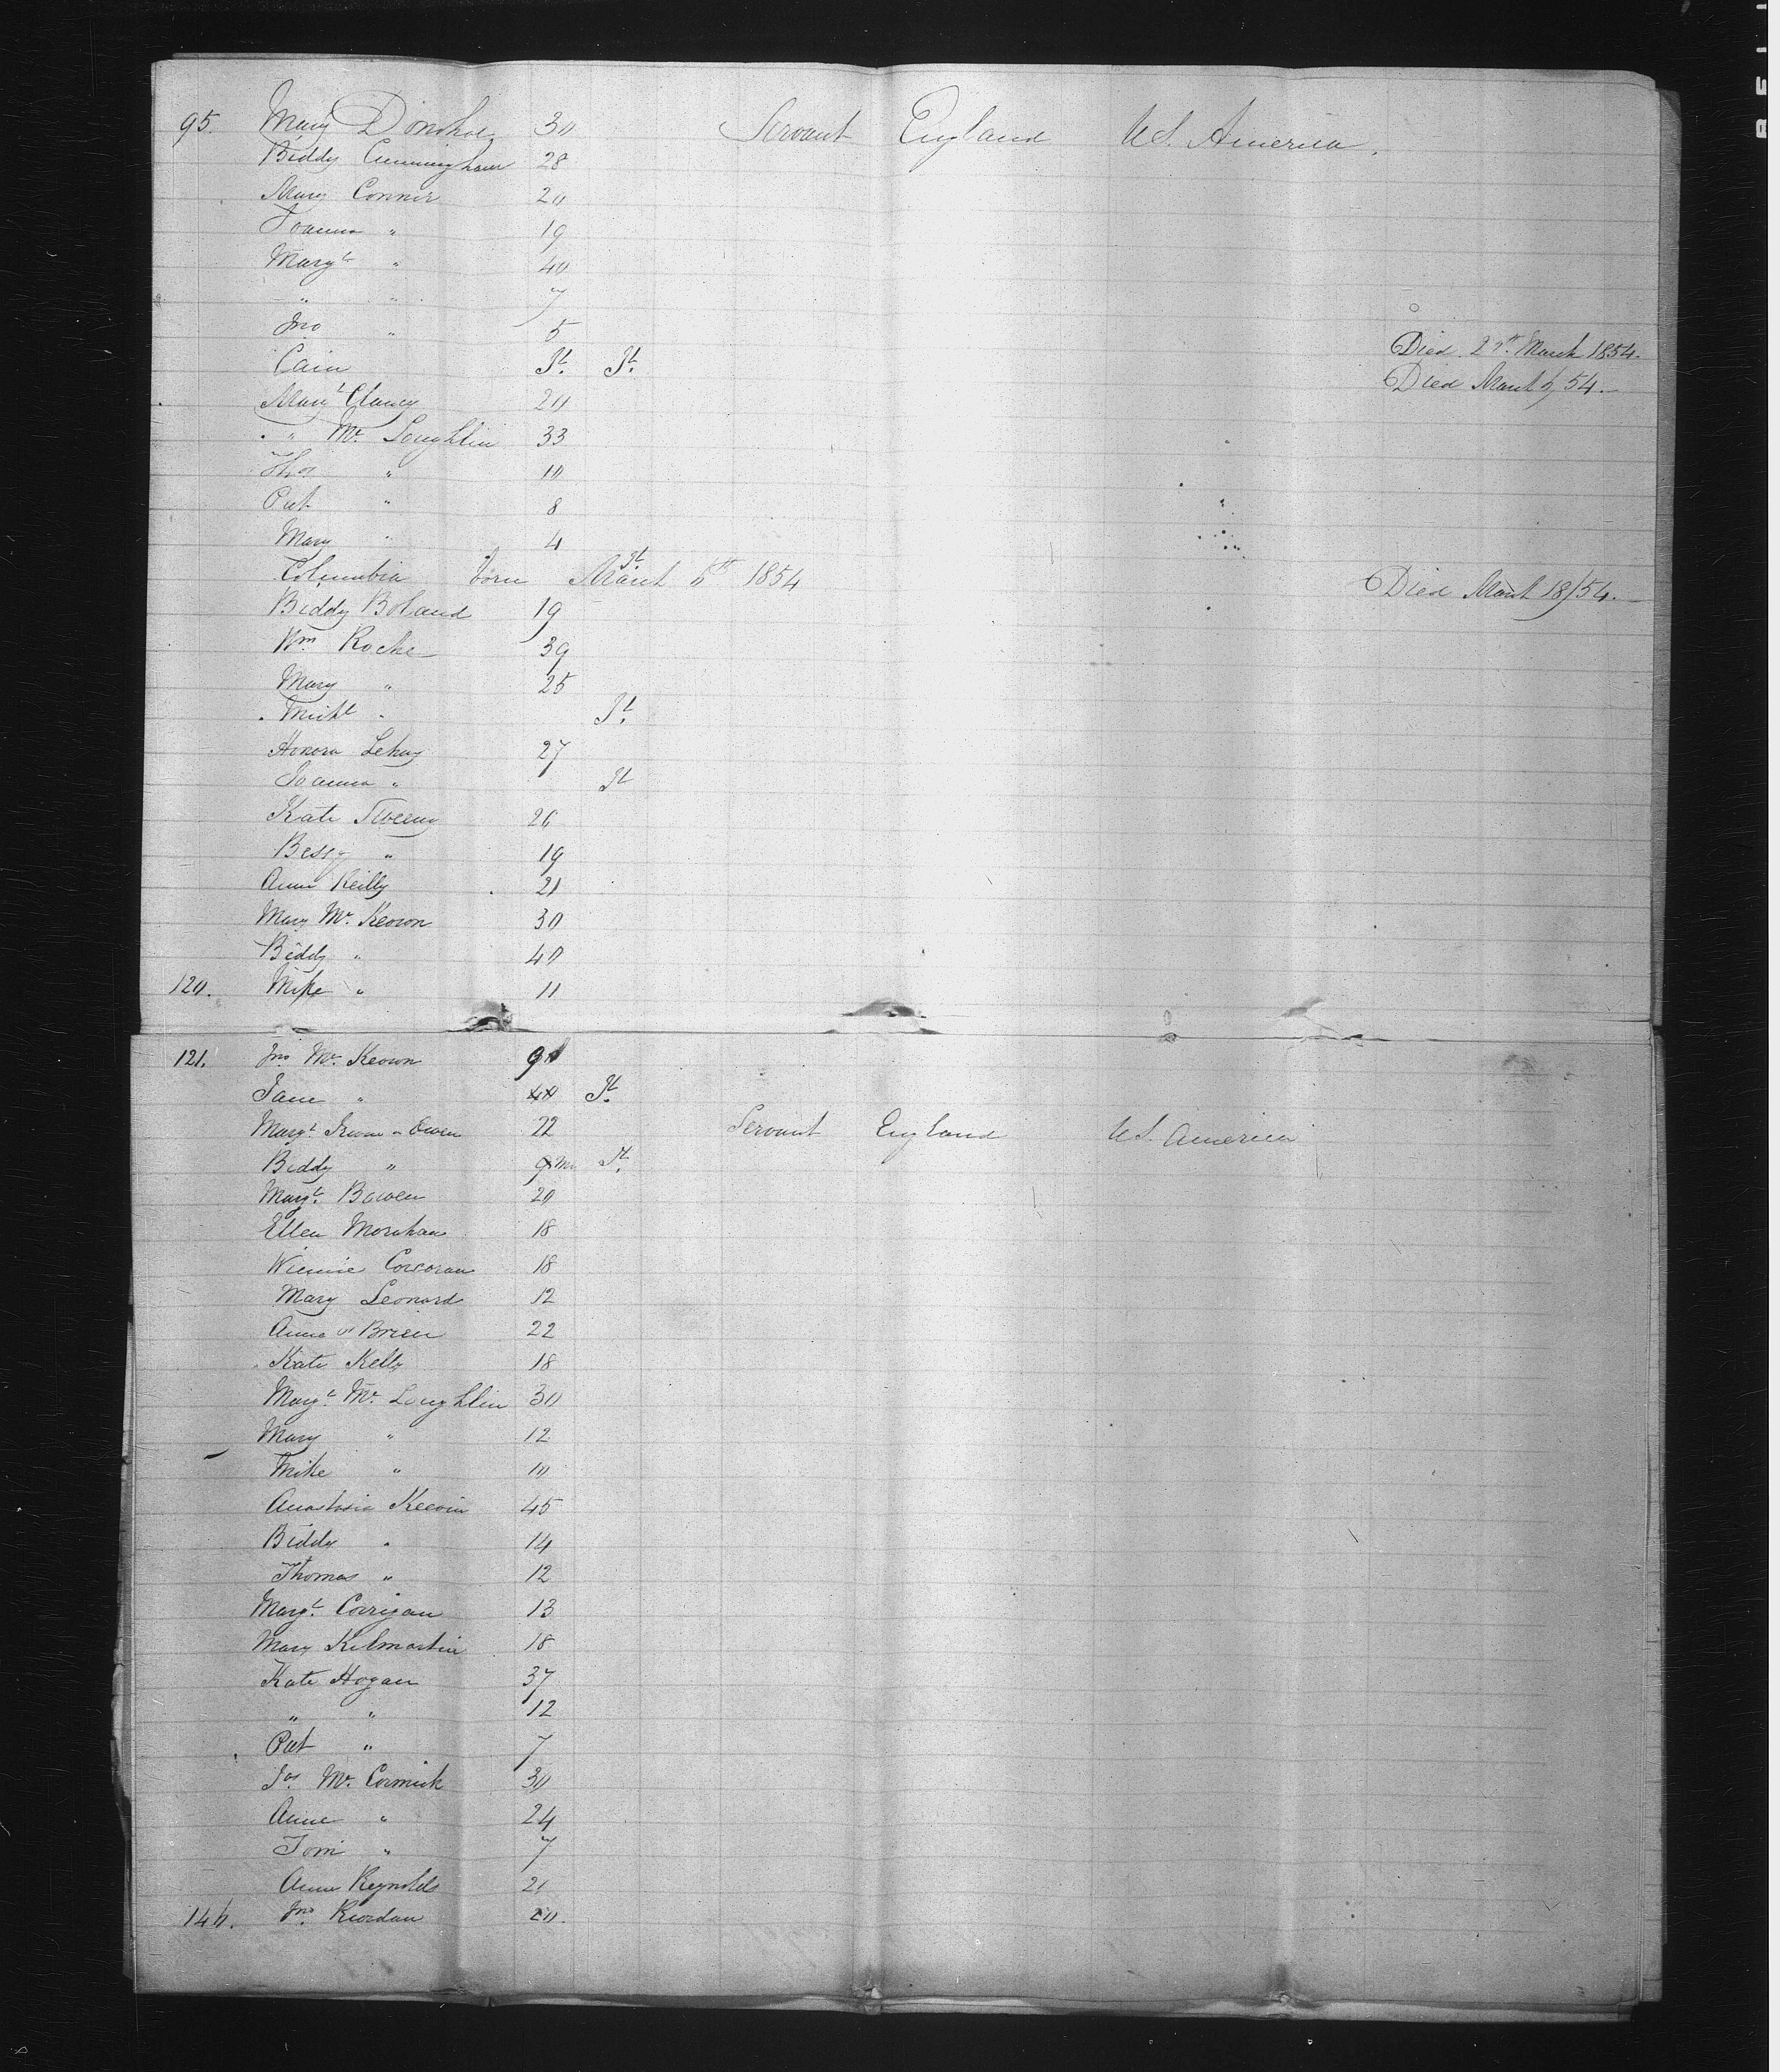 95. Mary Donohoe 30 Servant England U.S. America.
Biddy Cunningham 28
Mary Connor 20
Joanna " 19
Margt " 40
" " 7
Jno " 5
Cain It. It. Died 29th March 1854.
Margt Clancy 20 Died March 5/54.
" Mc Loughlin 33
Thos " 10
Pat " 8
Mary " 4
Columbia born March 5th 1854 It Died March 18/54.
Biddy Boland 19
Wm Roche 39
Mary " 25
Michl " It.
Honora Lehay 27
Joanna " It
Kate Sweeny 26
Bessy " 19
Anne Reilly 21
Mary Mc Keown 30
Biddy " 40
120. Mike " 11
121. Jno Mc Keown 9
Jane " It.
Margt Owen 22 Servant England U.S. America
Biddy " 9 Mo It.
Margt Bowen 20
Ellen 18
Winnie Corcoran 18
Mary Leonard 12
Anne O'Brien 22
Kate Kelly 18
Margt Mc Loughlin 30
Mary " 12
Mike " 10
Anastasia 45
Biddy " 14
Thomas " 12
Margt Corrigan 13
Mary Kilmartin 18
Kate Hogan 37
" " 12
Pat " 7
Jas Mc Cormick 30
Anne " 24
Tom " 7
Anne Reynolds 21
146. Jno Riordan 20.